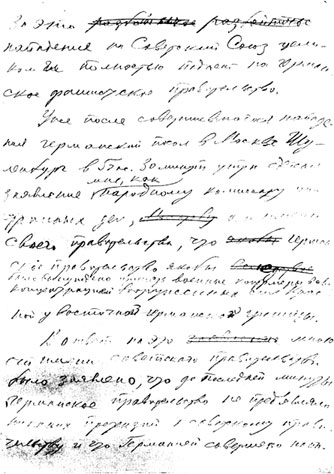 За это ~~разбойничье~~ разбойничье
нападение на Советский Союз цели-
ком и полностью падает на герман-
ское фашистское правительство.
Уже после совершившегося нападе-
ния германский посол в Москве Шу-
ленбург в 5 час. 30 минут утра сделал
мне, как
заявление народному комиссару ино-
странных дел,
своего правительства, что герман-
ское правительство
концентрацией
ной у восточной германской границы.
В ответ на это мною
от имени советского правительства
было заявлено, что до последней минуты
германское правительство не предъявляло
никаких претензий к советскому прави-
тельству и что Германией совершено напа-